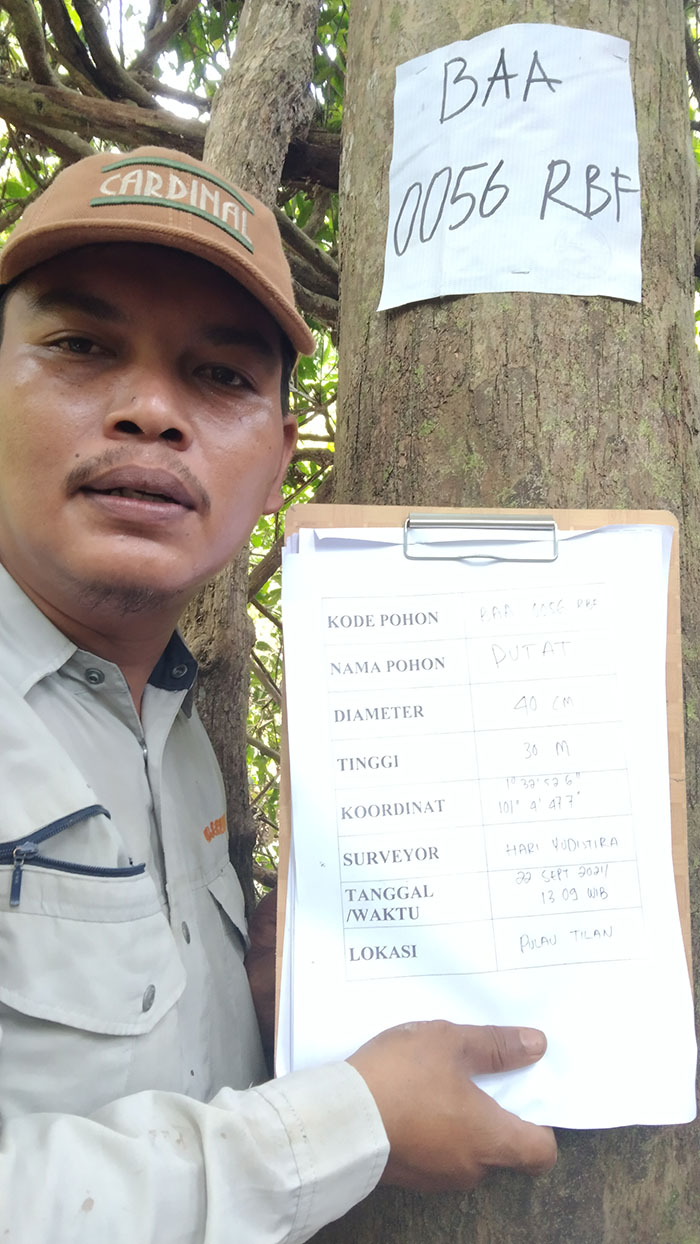 BAA
0056 RBF
CARDINAL
KODE POHON BAA 0056 RBF
NAMA POHON DUTAT
DIAMETER 40 CM
TINGGI 30 M
KOORDINAT 1° 37' 52 6" 
101° 4' 47 7"
SURVEYOR HARI YUDISTIRA
TANGGAL 22 SEPT 2021/
/WAKTU 13 09 WIB
LOKASI PULAU TILAN